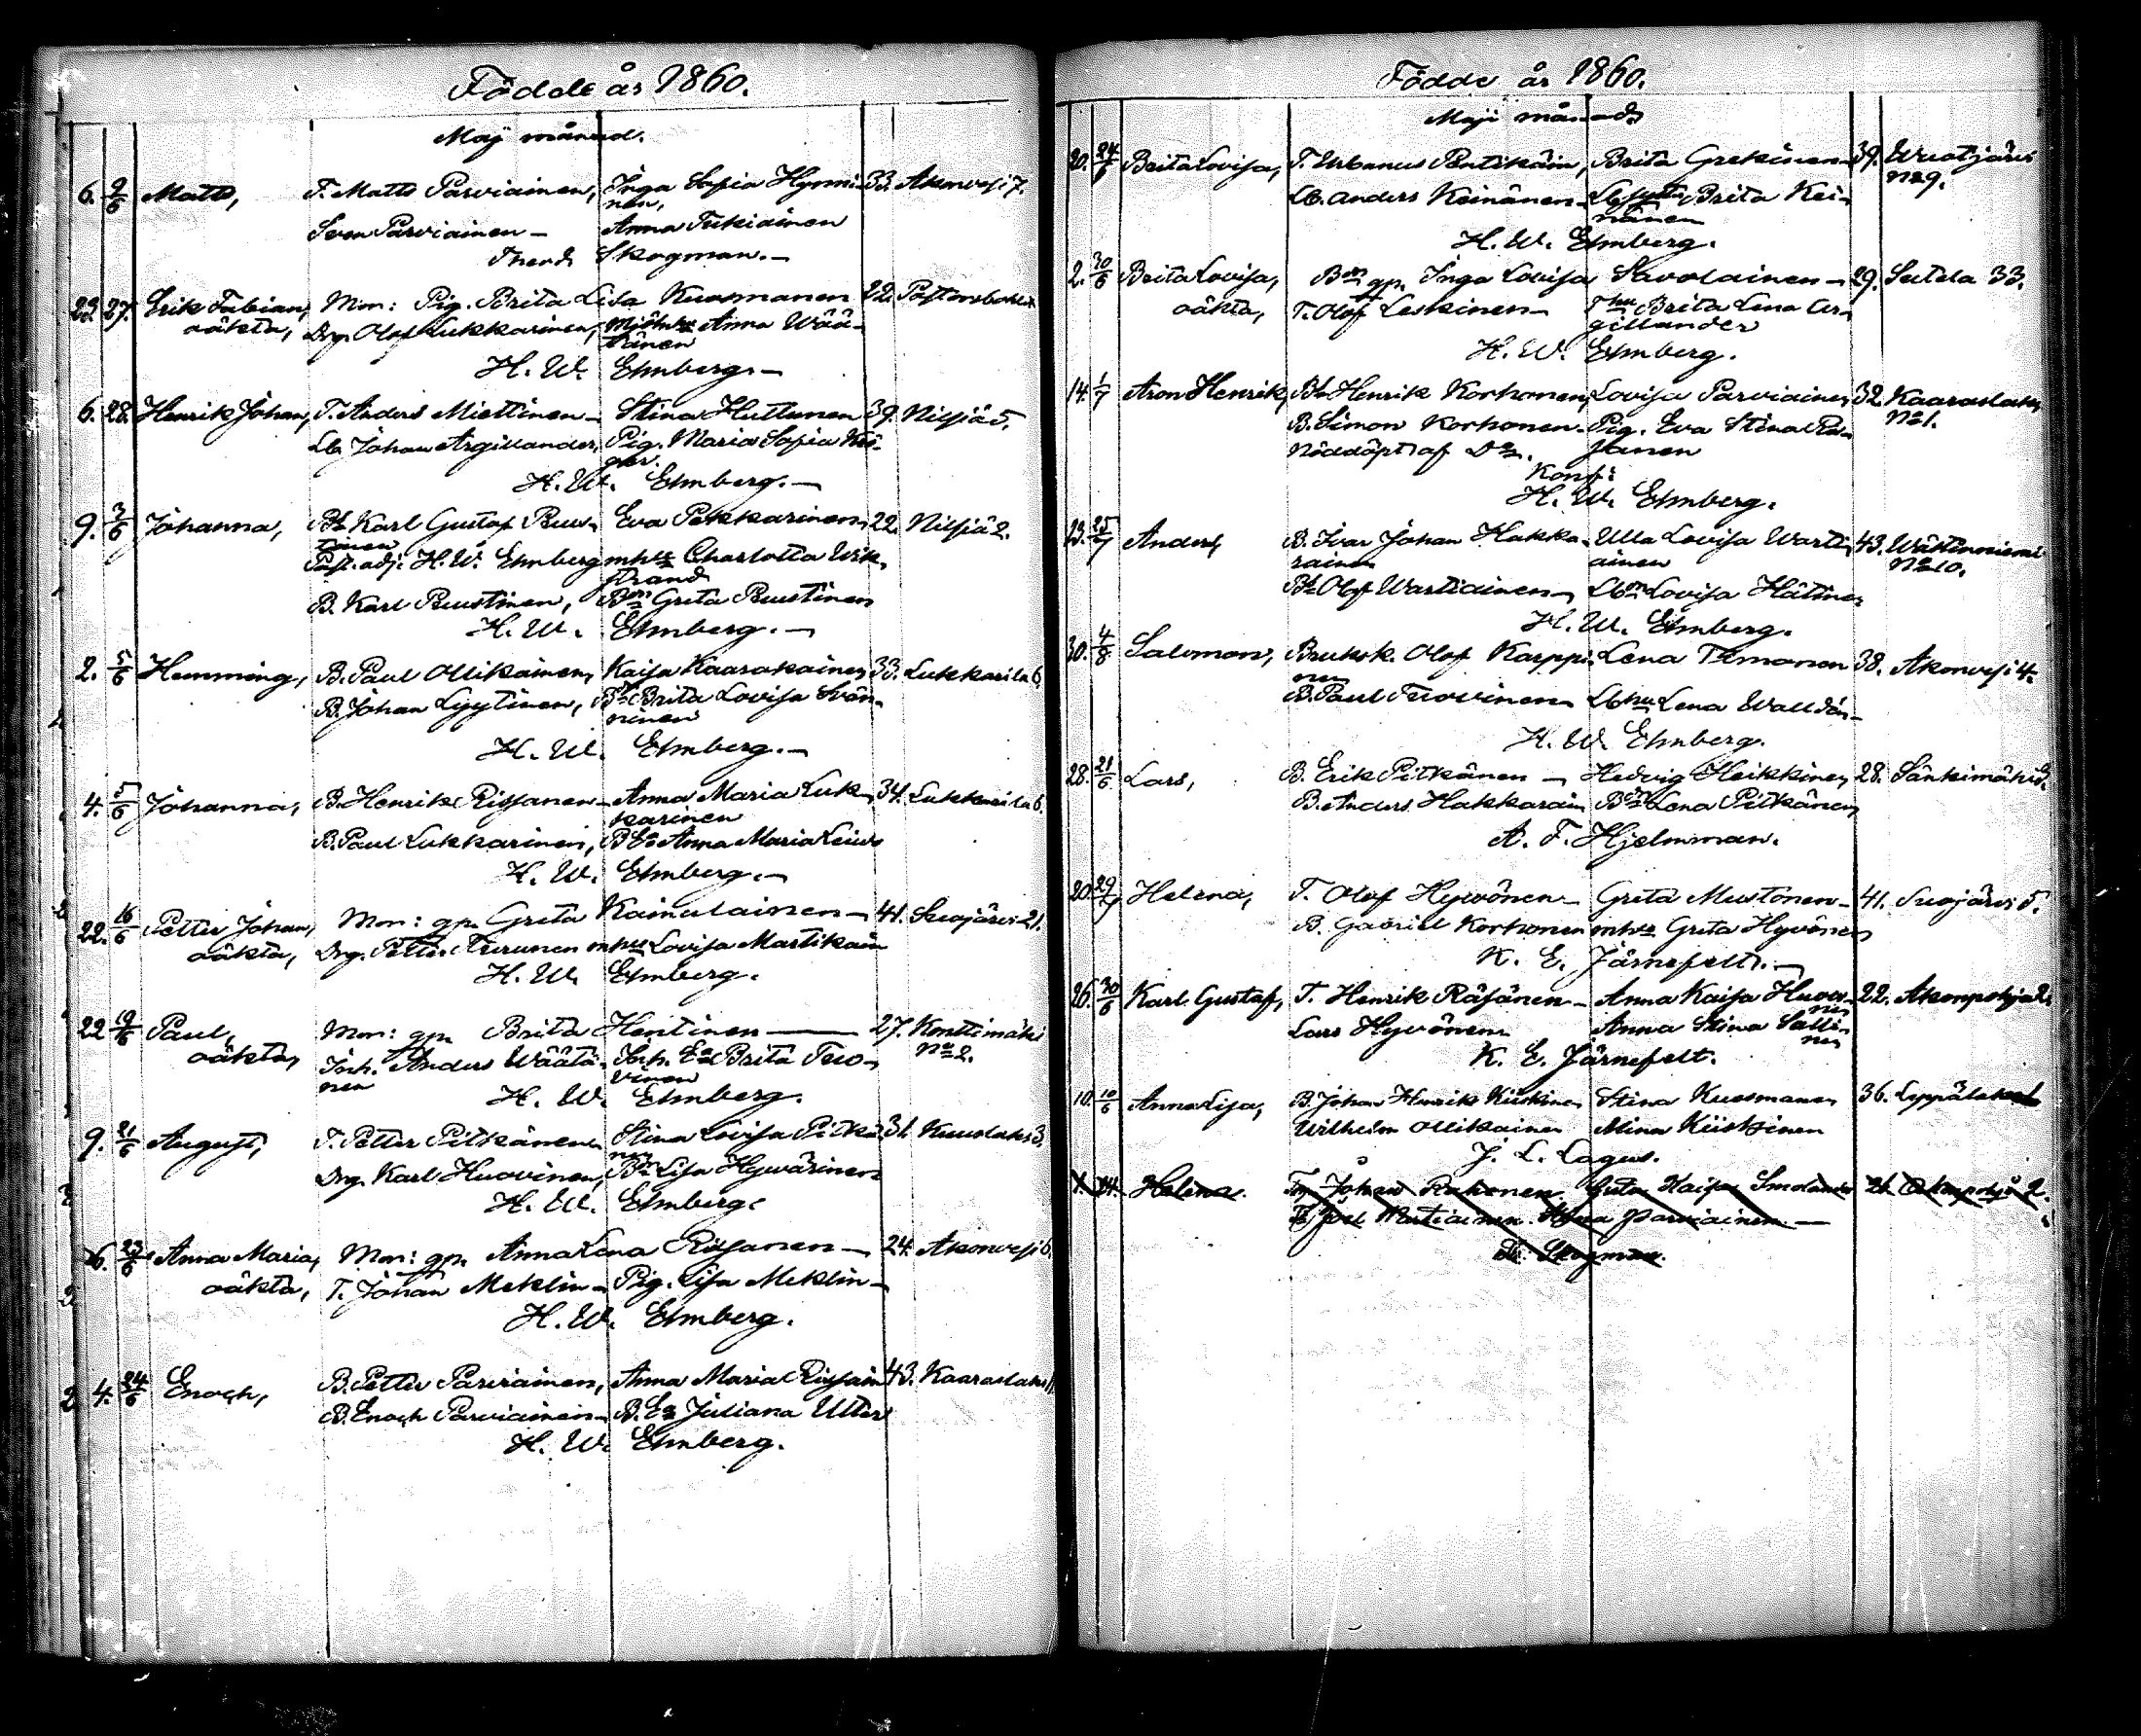 Födde år 1860.
Maj månad.
6. 9/6 Matts, T. Matts Parviainen, Inga Sofia Hynni- 33. Akonvesi 7.
nen,
Sven Parviainen - Anna Tukiainen
Theod. Skogman. -
22. 27. Erik Fabian, Mon: Pig. Brita Lisa Kuosmanen 22.
oäkta, Drg. Olof Lukkarinen, Anna Wää-
tänen
H. W. Elmberg. -
6. 28. Henrik Johan, T. Anders Miettinen - Stina Huttunen 39. Nilsiä 5.
Lb. Johan Argillander, Pig. Maria Sofia
H. W. Elmberg. -
9. 3/6 Johanna, Bs Karl Gustaf Ruus- Eva Pekkarinen, 22. Nilsiä 2.
tinen
Past. adj. H. W. Elmberg mhu Charlotta Wik-
strand
B. Karl Ruustinen, Bdn Greta Ruustinen
H. W. Elmberg. -
2. 5/6 Hemming, B. Paul Ollikainen, Kaisa Kaarakainen 33. Lukkarila 6.
B. Johan Lyytinen, Brita Lovisa Svän-
ninen
H. W. Elmberg. -
4. 5/6 Johanna, B. Henrik Rissanen - Anna Maria Luk- 34. Lukkarila 6.
karinen
B. Paul Lukkarinen, B. Ea Anna Maria
H. W. Elmberg. -
22. 16/6 Petter Johan, Mon: gp. Greta Kainulainen - 41. Suojärvi 21.
oäkta, Drg. Petter Turunen mhu Lovisa Martikain
H. W. Elmberg.
22 9/6 Paul, Mon: gp. Brita Hentinen - 27. Konttimäki
oäkta, Inh. Anders Väätä- Inh. Ea Brita Tuo- No 2.
nen vinen
H. W. Elmberg.
9. 21/6 August, T. Petter Pitkänen Stina Lovisa Pitkä- 31. Kuuslahti 3.
nen
Drg. Karl Huovinen, Bdn Lisa Hyvärinen
H. W. Elmberg.
6. 23/6 Anna Maria, Mon: gp. Anna Lena Räsänen - 24. Akonvesi 6.
oäkta, T. Johan Meklin - Pig. Lisa Meklin -
H. W. Elmberg.
4. 24/6 Enoch, B. Petter Parviainen, Anna Maria 43. Kaaraslahti
B. Enoch Parviainen - B. Ea Juliana Utter
H. W. Elmberg.
Födde år 1860.
Maji månad.
20. 24/6 Brita Lovisa, T. Urbanus Pentikäin, Brita Grekinen - 39. Wuotjärvi
No 9.
Lb. Anders Keinänen - Brita Kei-
nänen
H. W. Elmberg.
2. 30/6 Brita Lovisa, Bdr gp. Inga Lovisa Savolainen - 29. Sutela 33.
oäkta, T. Olof Leskinen - Thu Brita Lena Ar-
gillander
H. W. Elmberg.
14. 1/7 Aron Henrik, Bs Henrik Korhonen, Lovisa Parviainen 32. Kaaraslahti
No 1.
B. Simon Korhonen - Pig. Eva Stina
Nöddöpt af
Konf:
H. W. Elmberg.
23. 25/7 Anders, B. Ivar Johan Hakka- Ulla Lovisa Warti- 43. Wäätinniemi
rainen ainen No 10.
Bs Olof Wartiainen - Lovisa Hätinen
H. W. Elmberg.
30. 4/8 Salomon, Olof Karppi- Lena Timonen 38. Akonvesi 4.
nen
B. Paul Tuovinen Lbhu Lena
H. W. Elmberg.
28. 21/6 Lars, B. Erik Pitkänen - Hedvig Heikkinen, 28. Sänkimäki
B. Anders Hakkarain Bdn Lena Pitkänen,
A. F. Hjelmman.
20. 29/7 Helena, T. Olof Hyvönen - Greta Mustonen - 41. Suojärvi 5.
B. Gabriel Korhonen mhu Greta Hyvönen
K. E. Järnefelt. -
26. 30/6 Karl Gustaf, T. Henrik Räsänen - Anna Kaisa Huovi- 22. Akonpohja 2.
nen
Lars Hyvönen Anna Stina Salli-
nen
K. E. Järnefelt.
10. 10/6 Anna Lisa, B. Johan Henrik Kiiskinen Stina Kuosmanen 36. Lyppälahti
Wilhelm Ollikainen Mina Kiiskinen
J. L. Lagus.
Helena. Johan Greta Kaisa 21. Akonpohja 2.
Joel Parviainen -
Skogman.